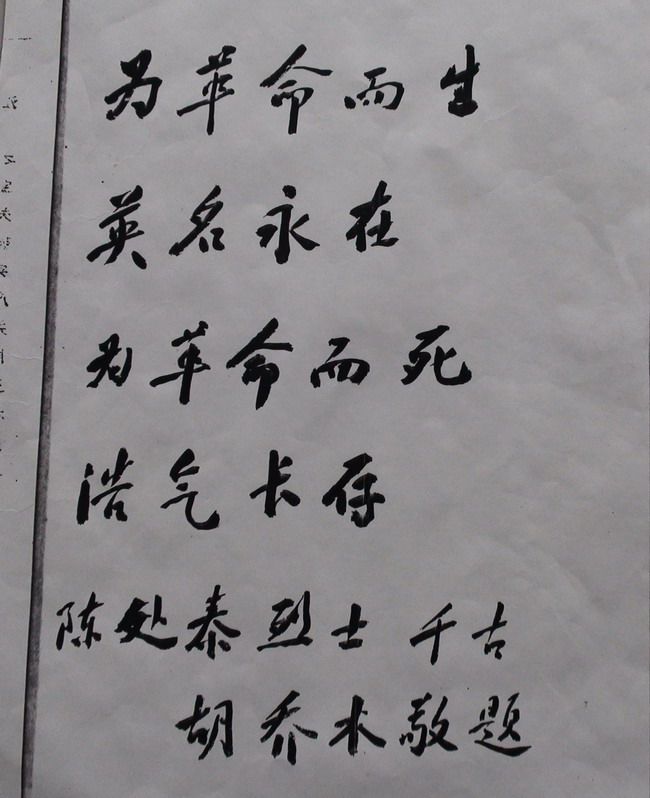 为革命而生
英名永在
为革命而死
浩气长存
陈处泰烈士 千古
胡乔木敬题